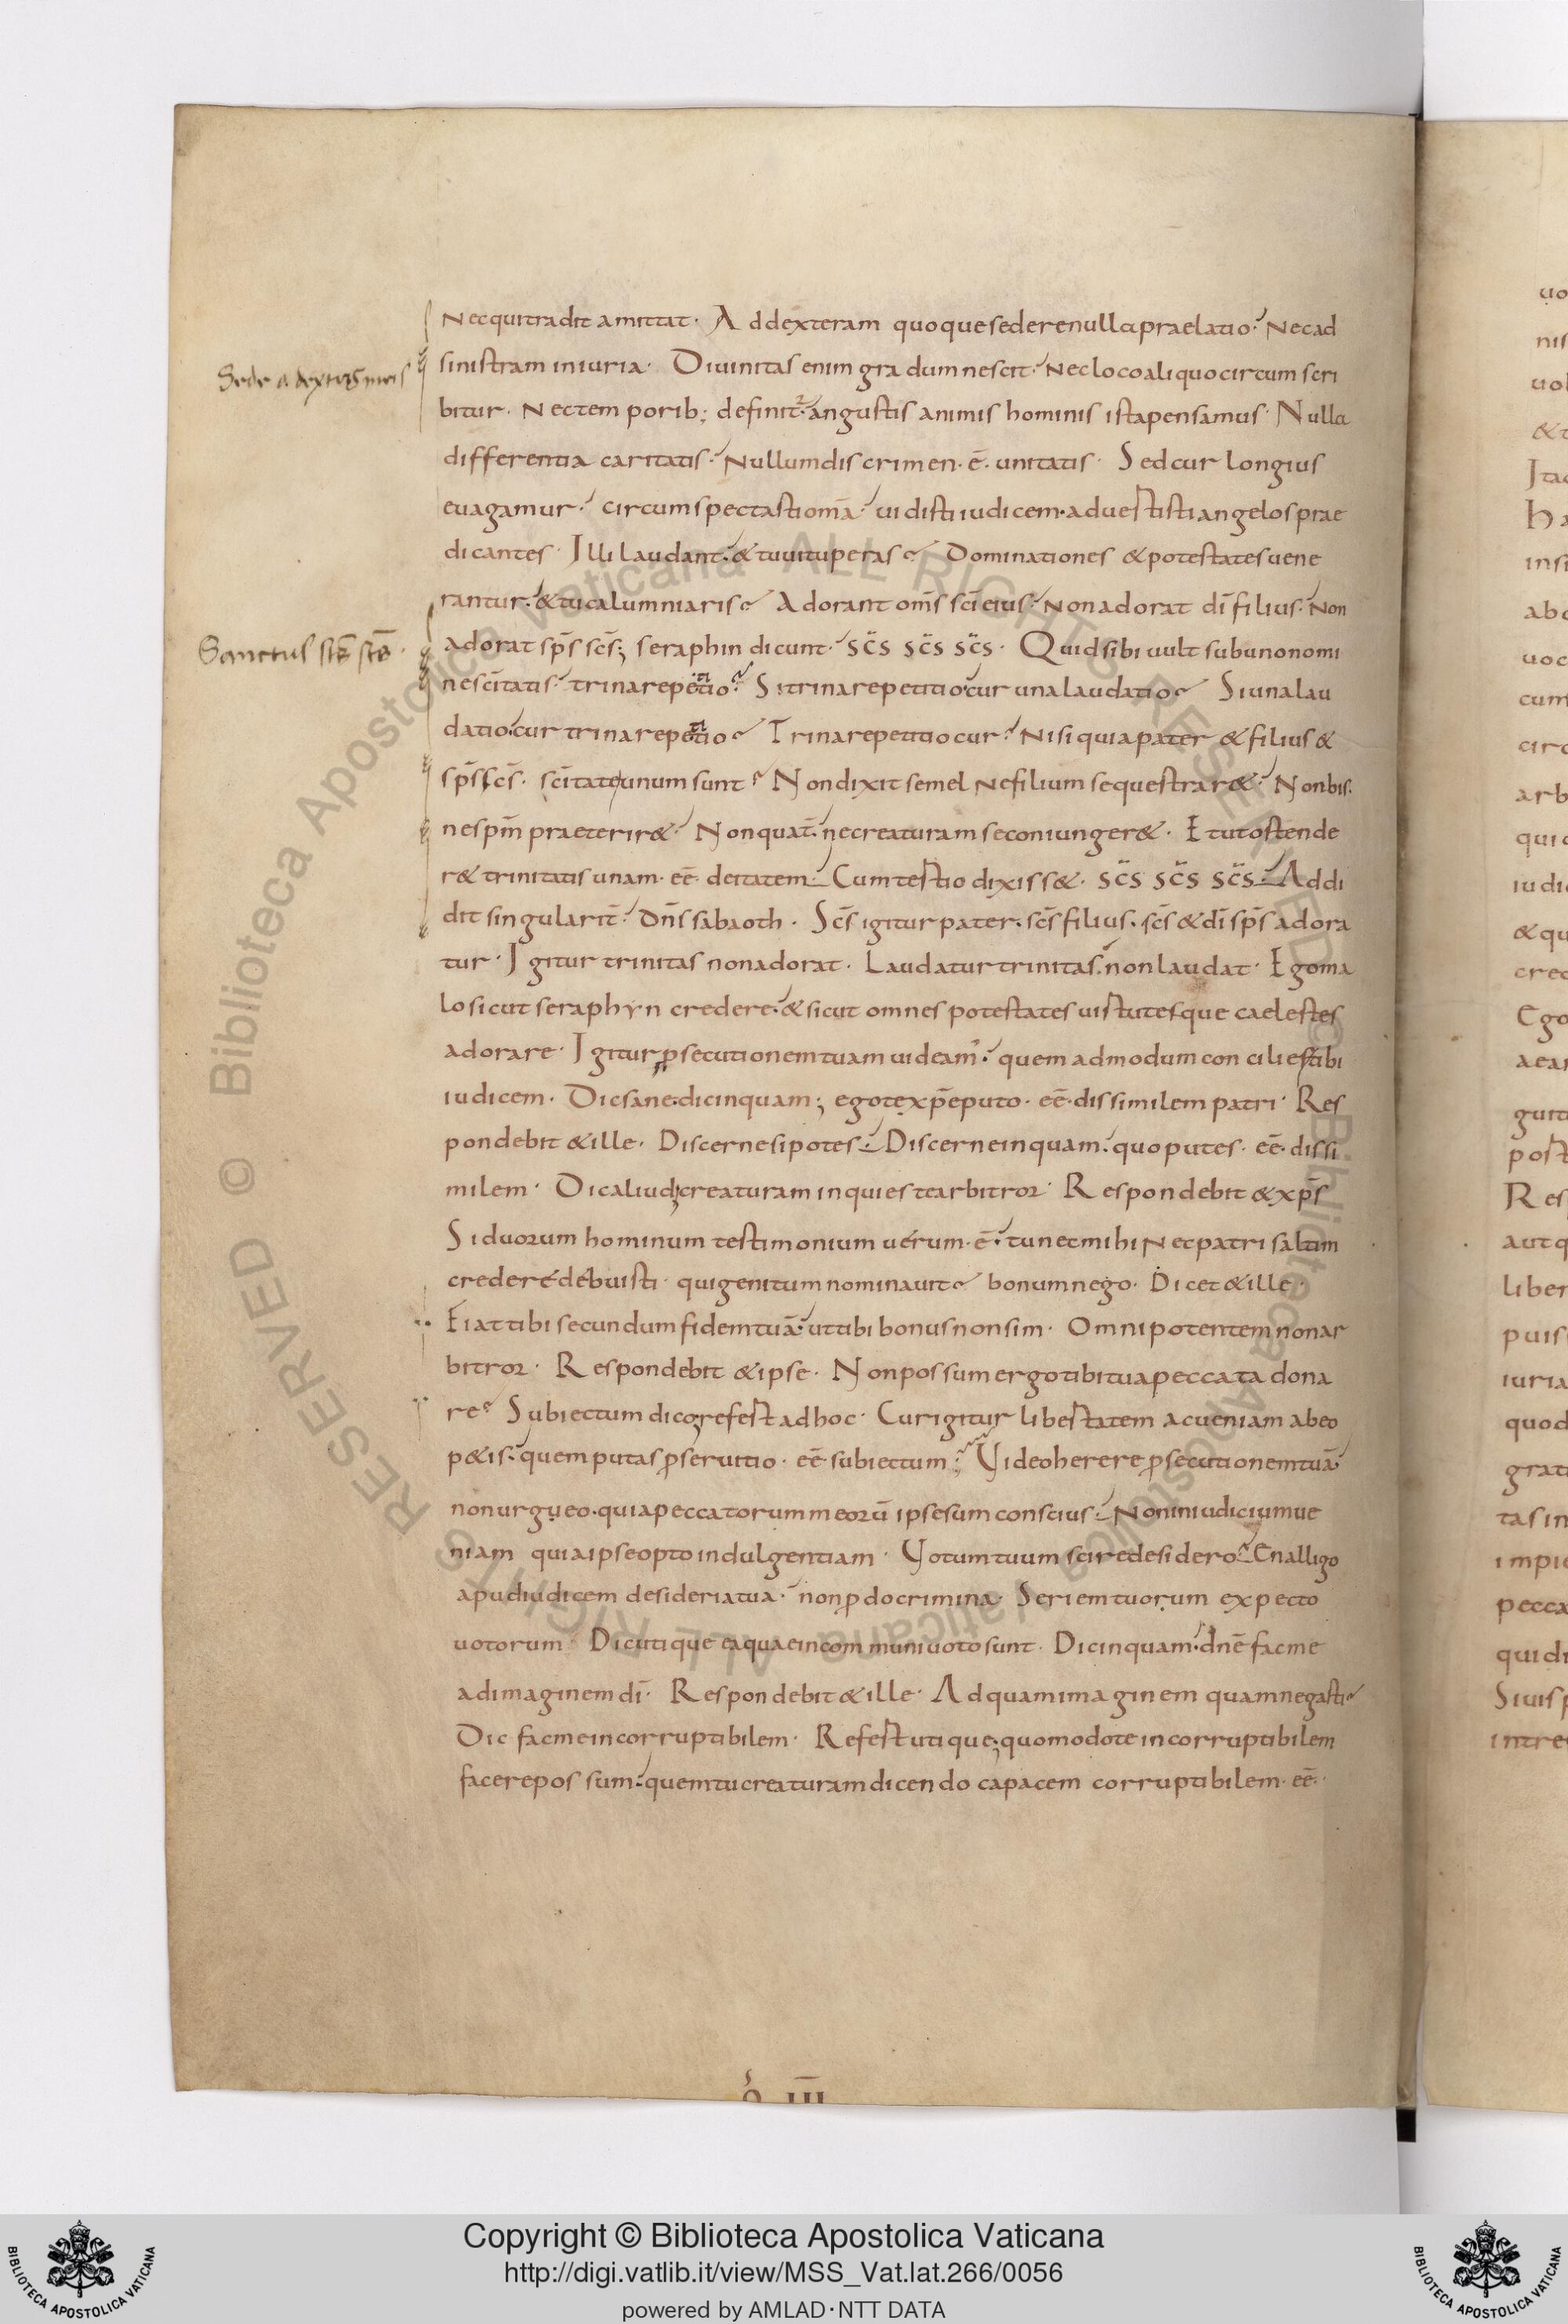 Nec qui tradit amittat· Ad dexteram quoque sedere nulla praelatio· Nec ad
Sede a dextris meis
sinistram iniuria· Diuinitas enim gradum nescit· Nec loco aliquo circum scri
bitur· Nec temporib; definit· angustis animis hominis ista pensamus· Nulla
differentia caritatis· Nullum discrimen· ē· unitatis· Sed cur longius
euagamur· circumspectasti omā· uidisti iudicem· aduestisti angelos prae
dicantes· Illi laudant· & tu uituperas Dominationes & potestates uene
rantur· & tu calumniaris Adorant om̄s sc̄i eius· Non adorat dī filius· Non
Sanctus sc̄s sc̄s·
adorat sp̄s sc̄s; seraphin dicunt· sc̄s sc̄s sc̄s· Quid sibi uult sub uno nomi
ne sc̄itatis· trina repetitio· Si trina repetitio cur una laudatio Si una lau
datio· cur trina repetitio Trina repetitio cur· Nisi quia pater & filius &
sp̄s sc̄s· sc̄itate unum sunt· Non dixit semel Ne filium sequestrar&· Non bis·
ne sp̄m praeterir&· Non quat̄· ne creaturam se coniunger&· Et ut ostende
r& trinitatis unam· eē· deitatem· Cum testio dixiss&· sc̄s sc̄s sc̄s· Addi
dit singularit̄· dn̄s sabaoth· Sc̄s igitur pater· sc̄s filius· sc̄s & dī sp̄s adora
tur· Igitur trinitas non adorat· Laudatur trinitas· non laudat· Ego ma
lo sicut seraphyn credere· & sicut omnes potestates uistutesque caelestes
adorare· Igitur p̱secutionem tuam uideam'· quem admodum conciliestibi
iudicem· Dic sane· dic inquam; ego te xp̄e puto· eē· dissimilem patri· Res
pondebit & ille· Discerne si potes· Discerne inquam· quo putes· eē· dissi
milem· Dic aliud; creaturam inquies te arbitror· Respondebit & xp̄s
Si duorum hominum testimonium uerum· ē· tu nec mihi Nec patri saltim
credere debuisti· qui genitum nominauit bonum nego· Dicet & ille·
Fiat tibi secundum fidem tuā· ut tibi bonus non sim· Omnipotentem non ar
bitror· Respondebit & ipse· Non possum ergo tibi tua peccata dona
re· Subiectum dico; refest ad hoc· Cur igitur libestatem ac ueniam ab eo
p&is· quem putas p̱ seruitio· eē subiectum· Video herere p̱secutionem tuā·
non urgueo· quia peccatorum meorū ipse sum conscius· Non inuidicium ue
niam quia ipse opto indulgentiam· Votum tuum scire desidero· En alligo
apud iudicem desideria tua· non p̱do crimina· Seriem tuorum expecto
uotorum Dic utique ea quae in communi uoto sunt· Dic inquam· dn̄e fac me
ad imaginem dī· Respondebit & ille· Ad quam imaginem quam negasti
Dic fac me incorruptibilem· Refest utique; quomodo te incorruptibilem
facere possum· quem tu creaturam dicendo capacem corruptibilem· eē·
Copyright © Biblioteca Apostolica Vaticana
http://digi.vatlib.it/view/MSS_Vat.lat.266/0056
powered by AMLAD·NTT DATA
BIBLIOTECA APOSTOLICA VATICANA
BIBLIOTECA APOSTOLICA VATICANA